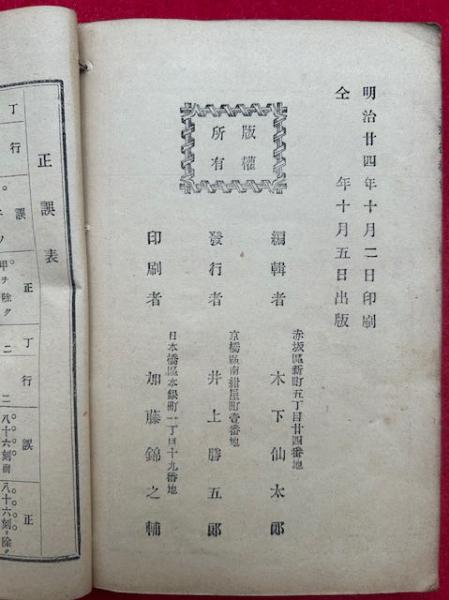 明治廿四年十月二日印刷
全年十月五日出版
版權
所有
赤坂區新町五丁目廿四番地
編輯者 木下仙太郎
京橋區南紺屋町壹番地
發行者 井上勝五郎
日本橋區本銀町一丁目十九番地
印刷者 加藤錦之輔
正誤表
丁
行
誤
正
丁
行
二
誤
八十六刻
正
八十六刻